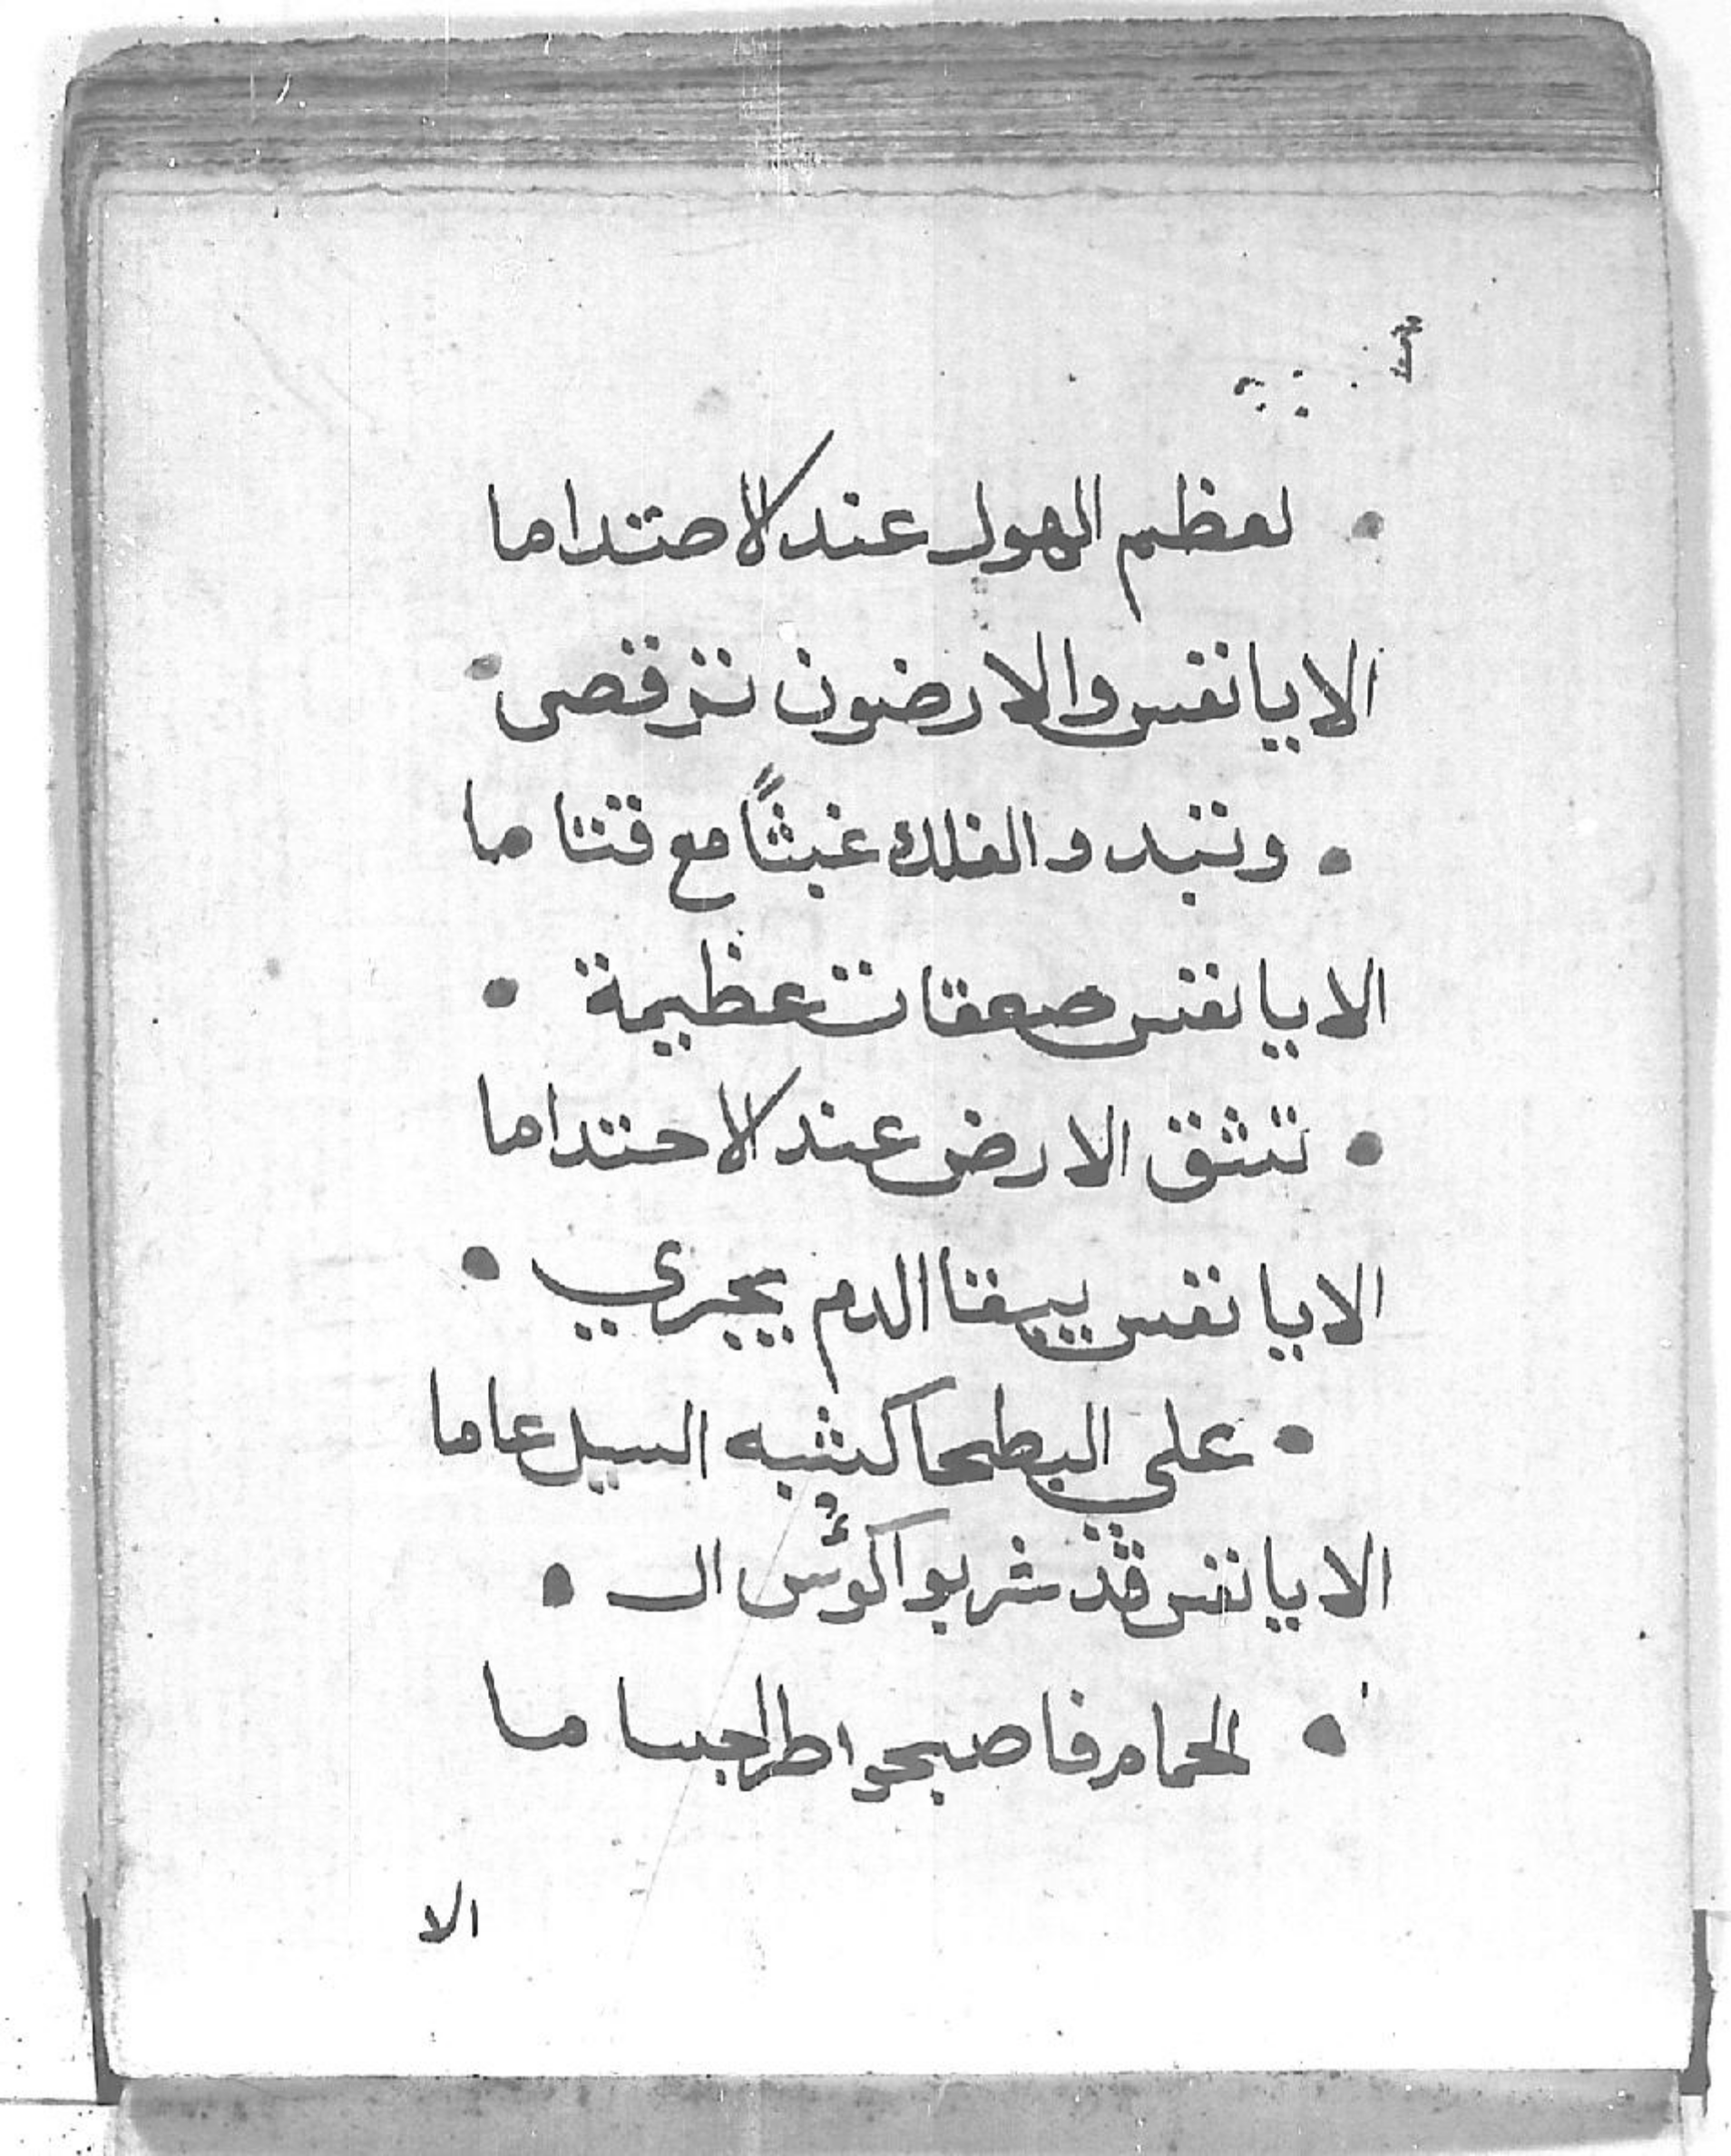 لعظم الهول عند الاصتداما
الا يا نفس والارضون ترقصي
وتبدو الفلك غبثًا مع قتاما
الا يا نفس صعقات عظيمة
تنشق الارض عند الاحتداما
الا يا نفس يبقا الدم يجري
على البطحا كشبه السيل عاما
الا يا نفس قد شربوا اكوئس ال
الحمام فاصبحوا طرا جساما
الا